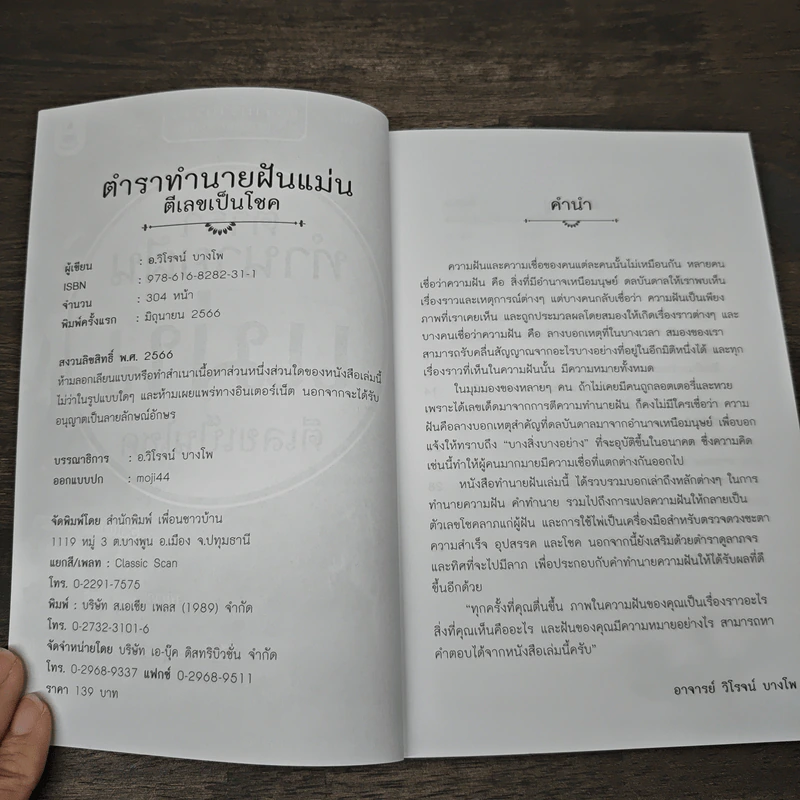 ตำราทำนายฝันแม่น
ตีเลขเป็นโชค
ผู้เขียน : อ.วิโรจน์ บางโพ
ISBN : 978-616-8282-31-1
จำนวน : 304 หน้า
พิมพ์ครั้งแรก : มิถุนายน 2566
สงวนลิขสิทธิ์ พ.ศ. 2566
ห้ามลอกเลียนแบบหรือทำสำเนาเนื้อหาส่วนหนึ่งส่วนใดของหนังสือเล่มนี้
ไม่ว่าในรูปแบบใดๆ และห้ามเผยแพร่ทางอินเตอร์เน็ต นอกจากจะได้รับ
อนุญาตเป็นลายลักษณ์อักษร
บรรณาธิการ : อ.วิโรจน์ บางโพ
ออกแบบปก : moji44
จัดพิมพ์โดย สำนักพิมพ์ เพื่อนชาวบ้าน
1119 หมู่ 3 ต.บางพูน อ.เมือง จ.ปทุมธานี
แยกสี/เพลท : Classic Scan
โทร. 0-2291-7575
พิมพ์ : บริษัท ส.เอเซีย เพลส (1989) จำกัด
โทร. 0-2732-3101-6
จัดจำหน่ายโดย บริษัท เอ-บุ๊ค ดิสทริบิวชั่น จำกัด
โทร. 0-2968-9337 แฟกซ์ 0-2968-9511
ราคา 139 บาท
คำนำ
ความฝันและความเชื่อของคนแต่ละคนนั้นไม่เหมือนกัน หลายคน
เชื่อว่าความฝัน คือ สิ่งที่มีอำนาจเหนือมนุษย์ ดลบันดาลให้เราพบเห็น
เรื่องราวและเหตุการณ์ต่างๆ แต่บางคนกลับเชื่อว่า ความฝันเป็นเพียง
ภาพที่เราเคยเห็น และถูกประมวลผลโดยสมองให้เกิดเรื่องราวต่างๆ และ
บางคนเชื่อว่าความฝัน คือ ลางบอกเหตุที่ในบางเวลา สมองของเรา
สามารถรับคลื่นสัญญาณจากอะไรบางอย่างที่อยู่ในอีกมิติหนึ่งได้ และทุก
เรื่องราวที่เห็นในความฝันนั้น มีความหมายทั้งหมด
ในมุมมองของหลายๆ คน ถ้าไม่เคยมีคนถูกลอตเตอรี่และหวย
เพราะได้เลขเด็ดมาจากการตีความทำนายฝัน ก็คงไม่มีใครเชื่อว่า ความ
ฝันคือลางบอกเหตุสำคัญที่ดลบันดาลมาจากอำนาจเหนือมนุษย์ เพื่อบอก
แจ้งให้ทราบถึง “บางสิ่งบางอย่าง” ที่จะอุบัติขึ้นในอนาคต ซึ่งความคิด
เช่นนี้ทำให้ผู้คนมากมายมีความเชื่อที่แตกต่างกันออกไป
หนังสือทำนายฝันเล่มนี้ ได้รวบรวมบอกเล่าถึงหลักต่างๆ ในการ
ทำนายความฝัน คำทำนาย รวมไปถึงการแปลความฝันให้กลายเป็น
ตัวเลขโชคลาภแก่ผู้ฝัน และการใช้ไพ่เป็นเครื่องมือสำหรับตรวจดวงชะตา
ความสำเร็จ อุปสรรค และโชค นอกจากนี้ยังเสริมด้วยตำราดูลาภจร
และทิศที่จะไปมีลาภ เพื่อประกอบกับคำทำนายความฝันให้ได้รับผลที่ดี
ขึ้นอีกด้วย
“ทุกครั้งที่คุณตื่นขึ้น ภาพในความฝันของคุณเป็นเรื่องราวอะไร
สิ่งที่คุณเห็นคืออะไร และฝันของคุณมีความหมายอย่างไร สามารถหา
คำตอบได้จากหนังสือเล่มนี้ครับ”
อาจารย์ วิโรจน์ บางโพ